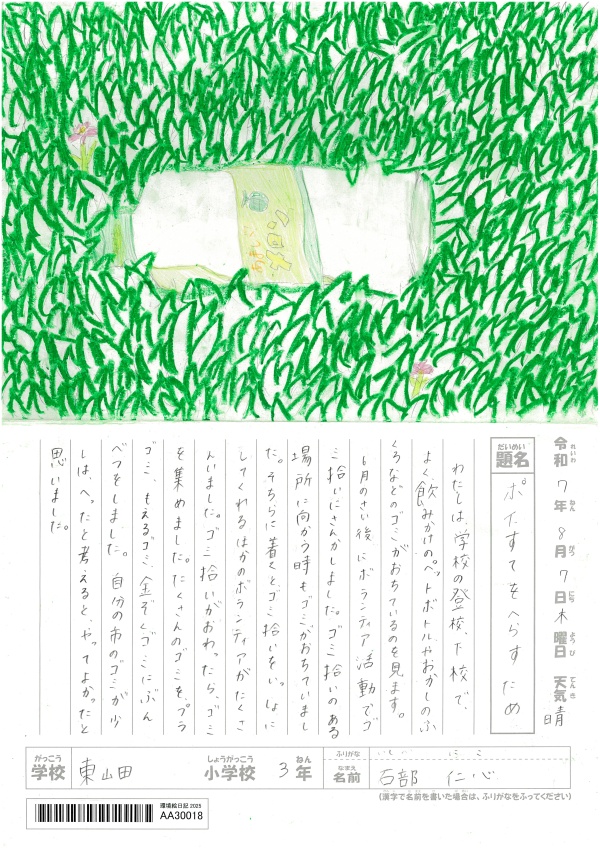 メロン
令和7年8月7日木曜日 天気 晴
れいわ ねん がつ にち ようび てんき
題名 ポイすてをへらすため
だいめい
わたしは、学校の登校、下校で、
よく飲みかけのペットボトルやおかしのふ
くろなどのゴミがおちているのを見ます。
6月のさい後にボランティア活動でゴ
ミ拾いにさんかしました。ゴミ拾いのある
場所に向かう時もゴミがおちていまし
た。そちらに着くとゴミ拾いをいっしょに
してくれるほかのボランティアがたくさ
んいました。ゴミ拾いがおわったら、ゴミ
を集めました。たくさんのゴミを、プラ
ゴミ、もえるゴミ、金ぞくゴミにぶん
べつをしました。自分の市のゴミが少
しは、へったと考えると、やってよかったと
思いました。
がっこう しょうがっこう ねん
学校 東山田 小学校 3年
ふりがな
なまえ
名前 石部 仁心
(漢字で名前を書いた場合は、ふりがなをふってください)
環境絵日記 2025
AA30018